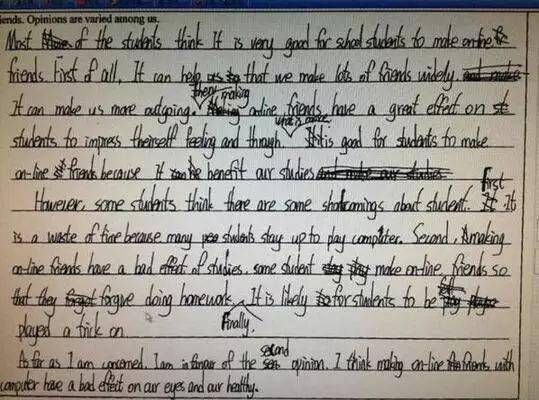 iends. Opinions are varied among us.
Most of the students think It is very good for school students to make on-line
friends. First of all, It can help that we make lots of friends widely.
It can make us more outgoing. Then, making on-line friends have a great effect on
students to impress theirself feeling and through. What's more, It is good for students to make
on-line friends because It benefit our studies
However, some students think there are some shortcomings about student. First It
is a waste of time because many students stay up to play computer. Second, making
on-line friends have a bad effect of studies. some student make on-line friends so
that they forgive doing homework. Finally. It is likely for students to be
played a trick on.
As far as I am concerned. I am in favour of the second opinion. I think making on-line friends with
computer have a bad effect on our eyes and our healthy.